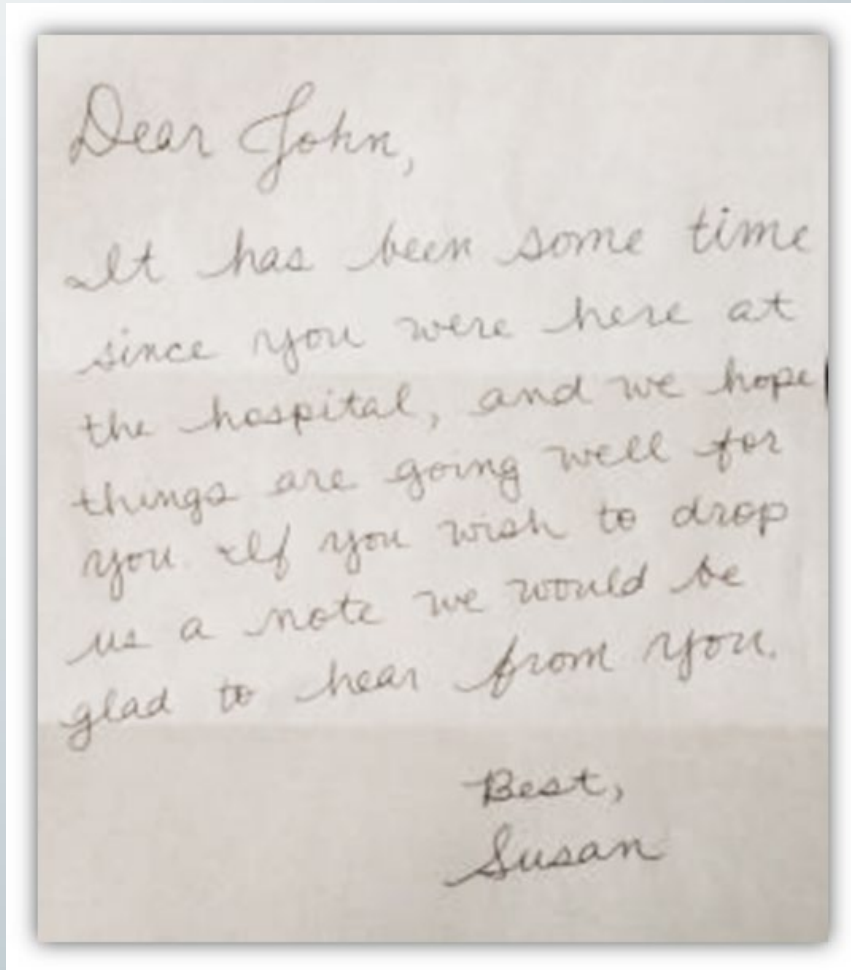 Dear John,
It has been some time
since you were here at
the hospital, and we hope
things are going well for
you. If you wish to drop
us a note we would be
glad to hear from you.
Best,
Susan